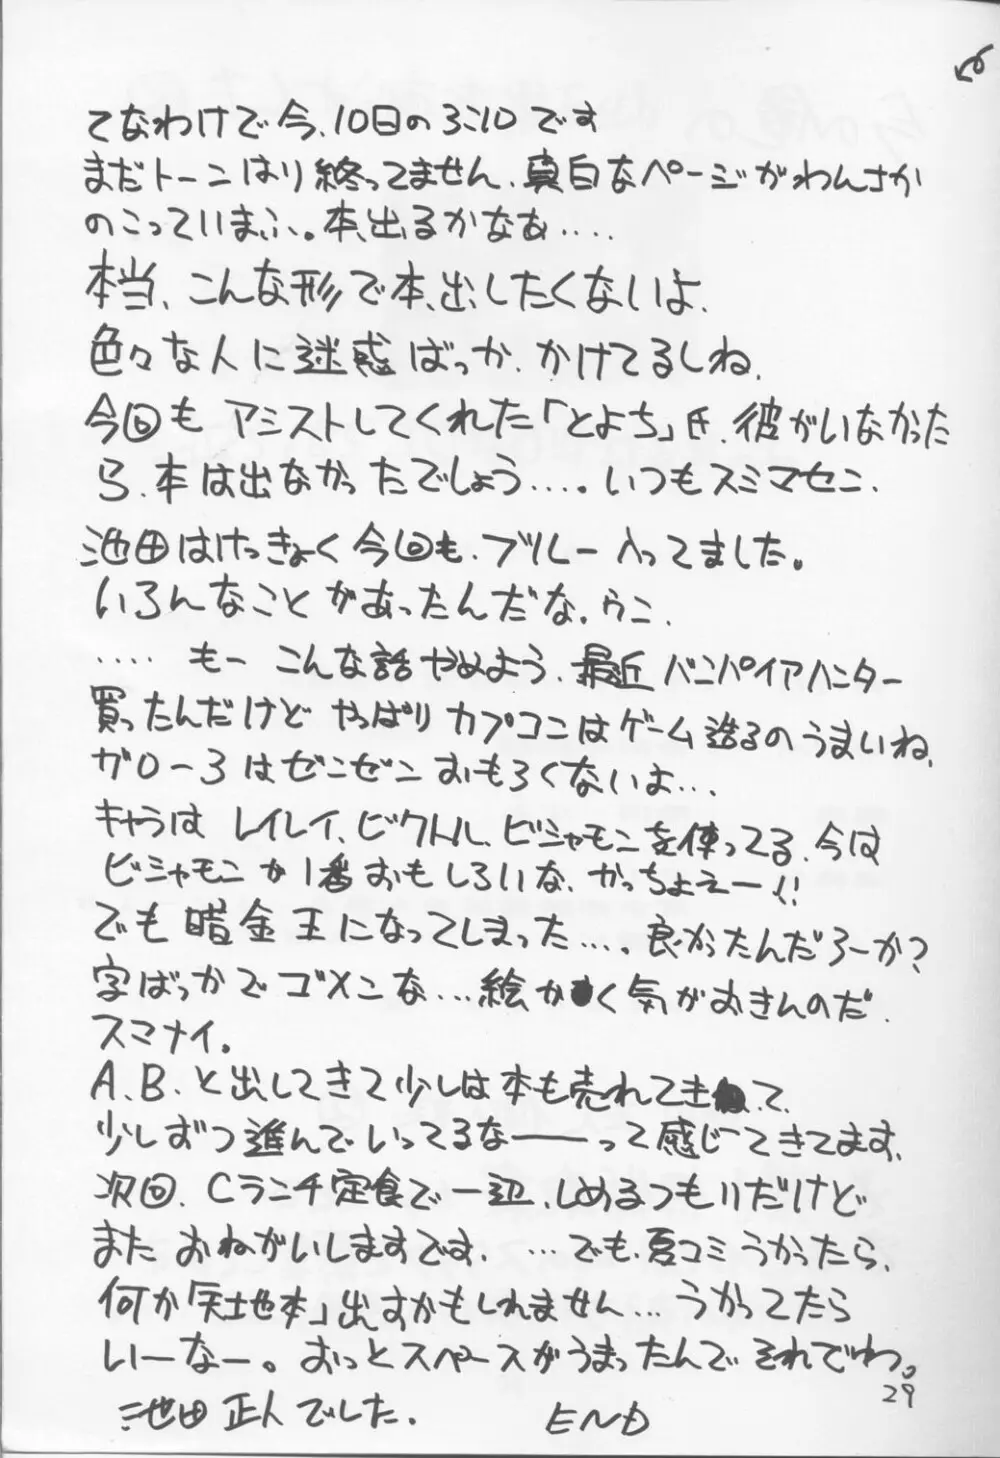 てなわけで今、10日の3:10です
まだトーンはり終ってません、真白なページがわんさか
のこっていまふ。本、出るかなぁ‥‥
本当、こんな形で本、出したくないよ、
色々な人に迷惑ばっか、かけてるしね、
今回も アシストしてくれた「とよち」氏、彼がいなかった
ら、本は出なかったでしょう‥‥。いつもスミマセン、
池田はけっきょく今回も、ブルー入ってました。
いろんなことがあったんだな。ウン、
‥‥ もー こんな話やめよう、最近 バンパイアハンター
買ったんだけど やっぱり カプコンはゲーム造るのうまいね、
ガロ-3はゼンゼン おもろくないよ…
キャラは レイレイ、ビクトル、ビシャモンを使ってる、今は
ビシャモンが1番おもしろいな、かっちょえー!!
でも 暗金王になってしまった‥‥。良かったんだろーか?
字ばっかでゴメンな…絵かく気がおきんのだ、
スマナイ。
A、B、と出してきて少しは本も売れてきて、
少しずつ進んでいってるなーーって感じてきてます、
次回、Cランチ定食で一辺、しめるつもりだけど
また おねがいしますです、…でも、夏コミうかったら、
何か「天地本」出すかもしれません…うかってたら
いーなー。おっとスペースがうまったんで それでわ。
29
池田正人でした。 END